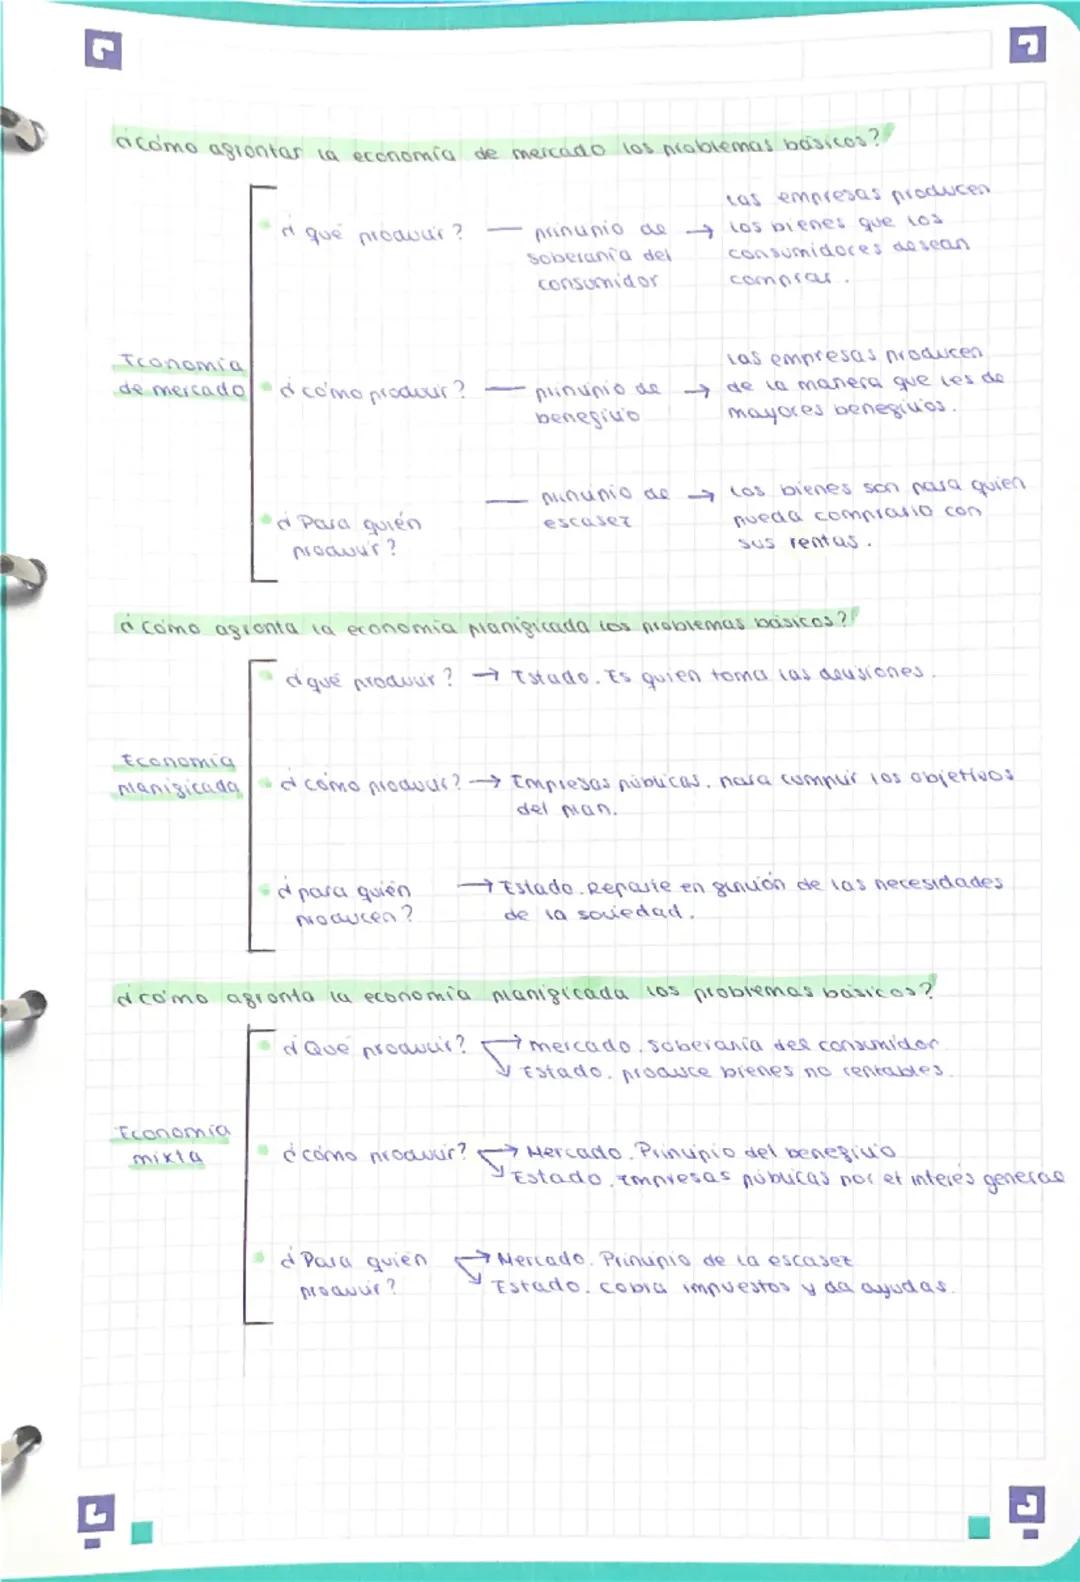 ¿Cómo afrontar la economía de mercado los problemas básicos?
¿qué producir? — principio de soberanía del consumidor → las empresas producen los bienes que los consumidores desean comprar.
Economía de mercado
¿cómo producir? — principio de beneficio → las empresas producen de la manera que les de mayores beneficios.
¿Para quién producir? — principio de escasez → los bienes son para quien pueda comprarlo con sus rentas.
¿Cómo afronta la economía planificada los problemas básicos?
¿qué producir? → Estado. Es quien toma las decisiones.
Economía planificada
¿cómo producir? → Empresas públicas, para cumplir los objetivos del plan.
¿para quién producen? → Estado. Reparte en función de las necesidades de la sociedad.
¿cómo afronta la economía planificada los problemas básicos?
¿Qué producir? → mercado. soberanía del consumidor
→ Estado. produce bienes no rentables.
Economía mixta
¿cómo producir? → Mercado. Principio del beneficio
→ Estado. Empresas públicas por el interés general
¿Para quién producir? → Mercado. Principio de la escasez
→ Estado. cobra impuestos y da ayudas.